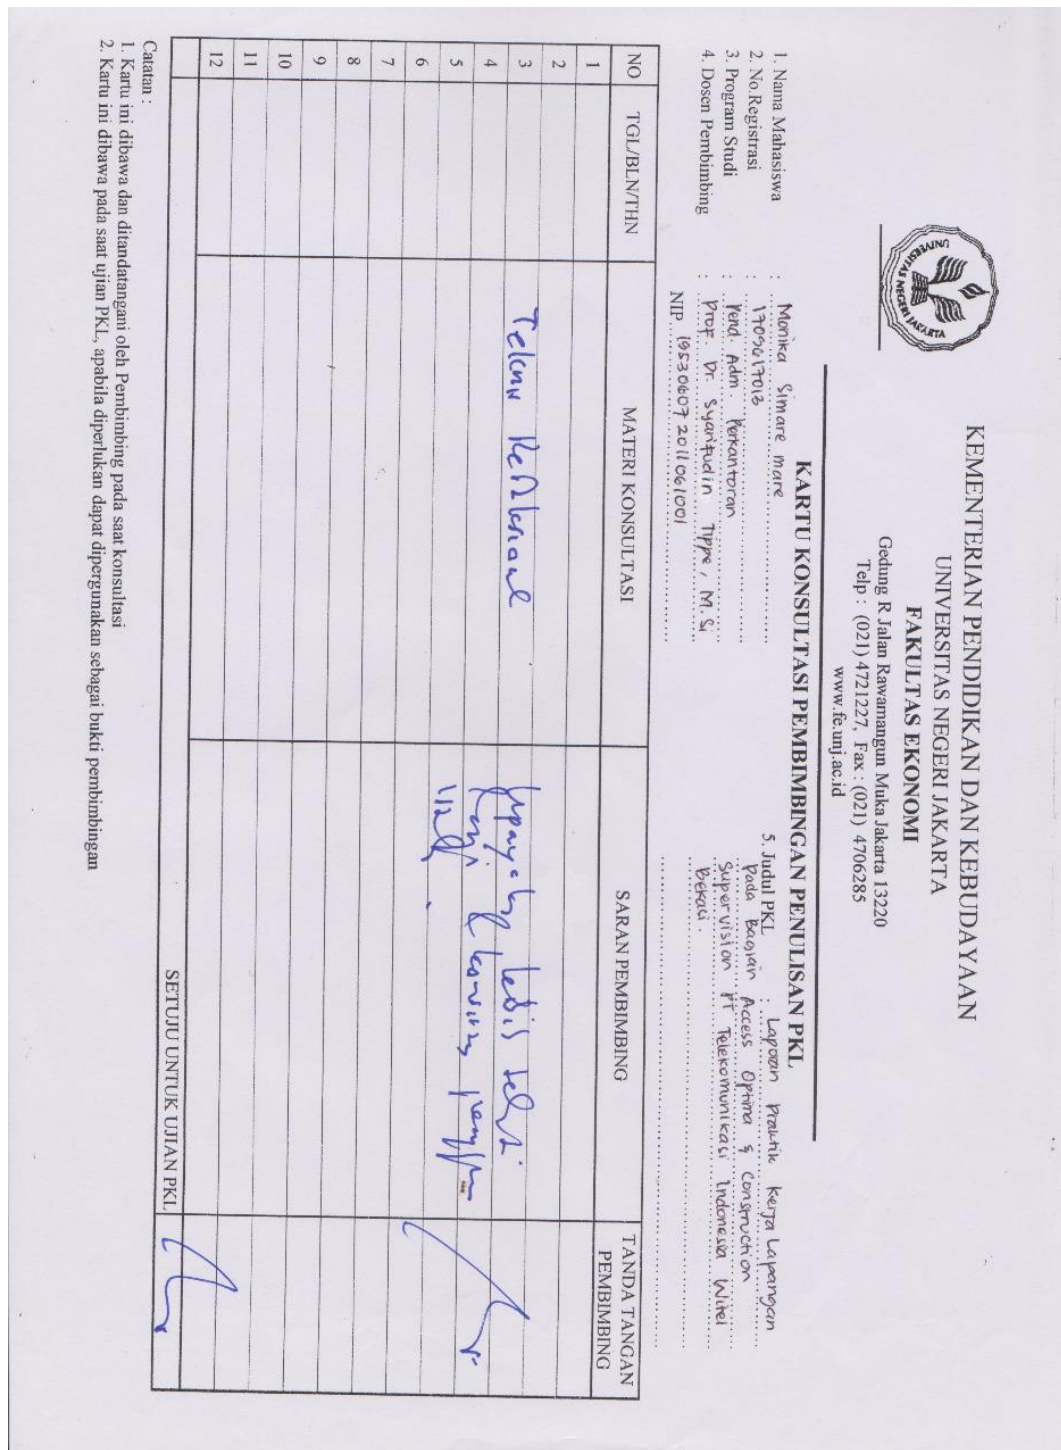 UNIVERSITAS NEGERI JAKARTA
KEMENTERIAN PENDIDIKAN DAN KEBUDAYAAN
UNIVERSITAS NEGERI JAKARTA
FAKULTAS EKONOMI
Gedung R Jalan Rawamangun Muka Jakarta 13220
Telp : (021) 4721227, Fax : (021) 4706285
www.fe.unj.ac.id
KARTU KONSULTASI PEMBIMBINGAN PENULISAN PKL
1. Nama Mahasiswa : Monika Simare mare
2. No.Registrasi : 1709617013
3. Program Studi : Pend. Adm. Perkantoran
4. Dosen Pembimbing : Prof. Dr. Syarifudin Tippe, M.Si
NIP. 19530607 201106 1001
5. Judul PKL : Laporan Praktik Kerja Lapangan
Pada Bagian Access Optima & Construction
Supervision PT Telekomunikasi Indonesia Witel
Bekasi.
NO TGL/BLN/THN MATERI KONSULTASI SARAN PEMBIMBING TANDA TANGAN PEMBIMBING
1
2
3
4
5
6
7
8
9
10
11
12
SETUJU UNTUK UJIAN PKL
Catatan :
1. Kartu ini dibawa dan ditandatangani oleh Pembimbing pada saat konsultasi
2. Kartu ini dibawa pada saat ujian PKL, apabila diperlukan dapat dipergunakan sebagai bukti pembimbingan